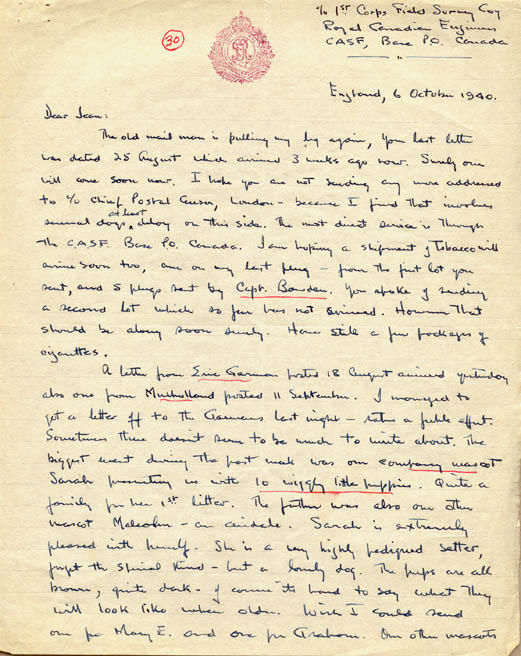 30
c/o 1st Corps Field Survey Coy
Royal Canadian Engineers
CASF, Base P.O. Canada
England, 6 October 1940.
Dear Jean:
The old mail man is pulling my leg again, your last letter
was dated 25 August which arrived 3 weeks ago now. Surely one
will come soon now. I hope you are not sending any more addressed
to c/o Chief Postal Censor, London - because I find that involves
several days at least delay on this side. The most direct service is through
the C.A.S.F. Base P.O. Canada. I am hoping a shipment of Tobacco will
arrive soon too, am on my last plug - from the first lot you
sent, and 5 plugs sent by Capt. Bowden. You spoke of sending
a second lot which so far has not arrived. However that
should be along soon surely. Have still a few packages of
cigarettes.
A letter from Eric Garman posted 18 August arrived yesterday
also one from Mulholland posted 11 September. I managed to
get a letter off to the Garmans last night - rather a feeble effort.
Sometimes there doesn't seem to be much to write about. The
biggest event during the past week was our company mascot
Sarah presenting us with 10 wiggly little puppies. Quite a
family for her 1st litter. The father was also our other
mascot Malcolm - an airedale. Sarah is extremely
pleased with herself. She is a very highly pedigreed setter,
forget the special kind - but a lovely dog. The pups are all
brown, quite dark - of course its hard to say what they
will look like when older. Wish I could send
one for Mary E. and one for Graham. Our other mascots